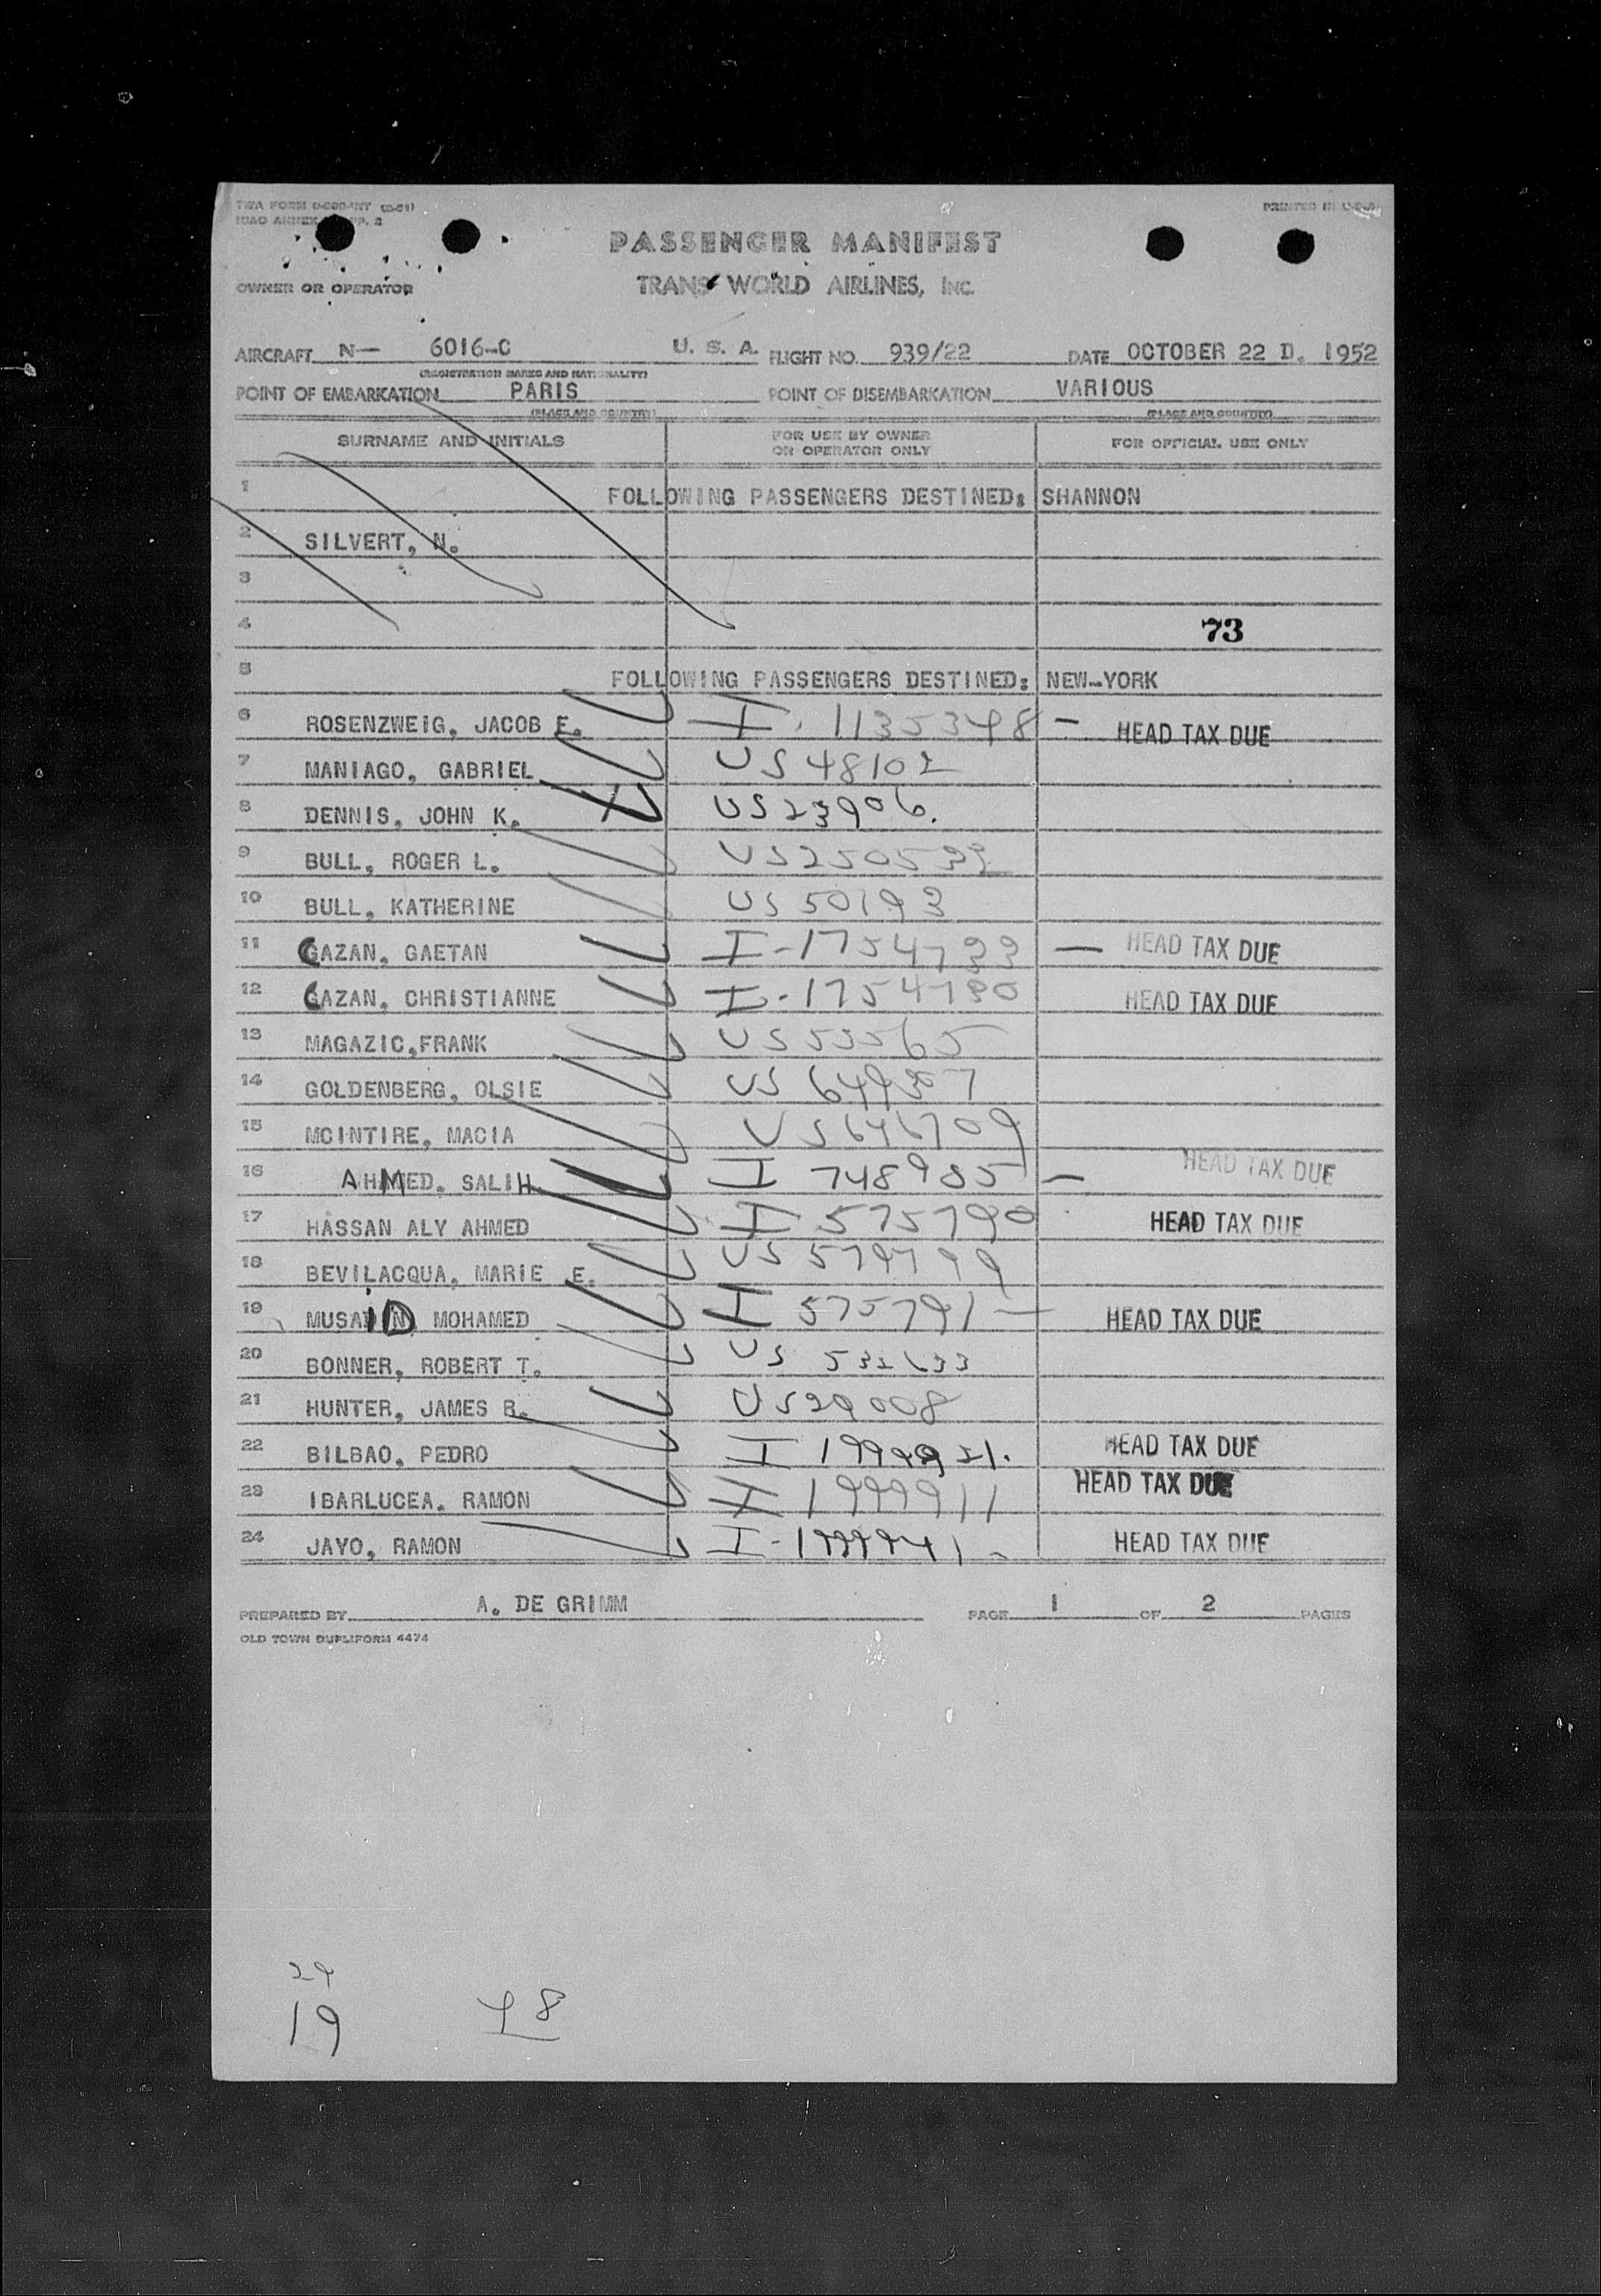 TWA FORM
ICAO ANNEX PP. 2
PRINTED IN U.S.A.
PASSENGER MANIFEST
OWNER OR OPERATOR TRANS WORLD AIRLINES, INC.
AIRCRAFT N- 6016-C U. S. A. FLIGHT NO. 939/22 DATE OCTOBER 22 D. 1952
(REGISTRATION MARKS AND NATIONALITY)
POINT OF EMBARKATION PARIS POINT OF DISEMBARKATION VARIOUS
(PLACE AND COUNTRY) (PLACE AND COUNTRY)
SURNAME AND INITIALS FOR USE BY OWNER OR OPERATOR ONLY FOR OFFICIAL USE ONLY
1 FOLLOWING PASSENGERS DESTINED: SHANNON
2 SILVERT, N.
3
4 73
5 FOLLOWING PASSENGERS DESTINED: NEW-YORK
6 ROSENZWEIG, JACOB E. I. 1135348 — HEAD TAX DUE
7 MANIAGO, GABRIEL US 48102
8 DENNIS, JOHN K. US 23906.
9 BULL, ROGER L.
10 BULL, KATHERINE US 50193
11 CAZAN, GAETAN I-1754799 — HEAD TAX DUE
12 CAZAN, CHRISTIANNE I-1754780 HEAD TAX DUE
13 MAGAZIC,FRANK US 55565
14 GOLDENBERG, OLSIE US
15 MCINTIRE, MACIA US 646709
16 AHMED, SALIH I 748985 — HEAD TAX DUE
17 HASSAN ALY AHMED I 575790 HEAD TAX DUE
18 BEVILACQUA, MARIE E. US 579799
19 MUSAID MOHAMED I 575791 — HEAD TAX DUE
20 BONNER, ROBERT T. US 532633
21 HUNTER, JAMES R. US 29008
22 BILBAO, PEDRO I HEAD TAX DUE
23 IBARLUCEA, RAMON I 1999911 HEAD TAX DUE
24 JAYO, RAMON I-1999941 - HEAD TAX DUE
PREPARED BY A. DE GRIMM PAGE 1 OF 2 PAGES
OLD TOWN DUPLIFORM 4474
29
19 48